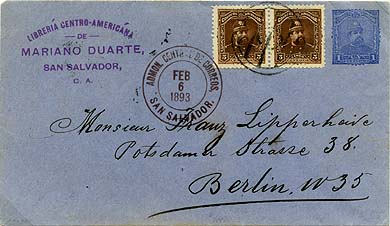 LIBRERÍA CENTRO-AMERICANA
— DE —
MARIANO DUARTE,
SAN SALVADOR,
C. A.
ADMON. CENTRAL DE CORREOS.
FEB
6
1893
SAN SALVADOR.
5
5
5
5
1
1
Monsieur Franz Lipperheide
Potsdamer Strasse 38.
Berlin, W 35